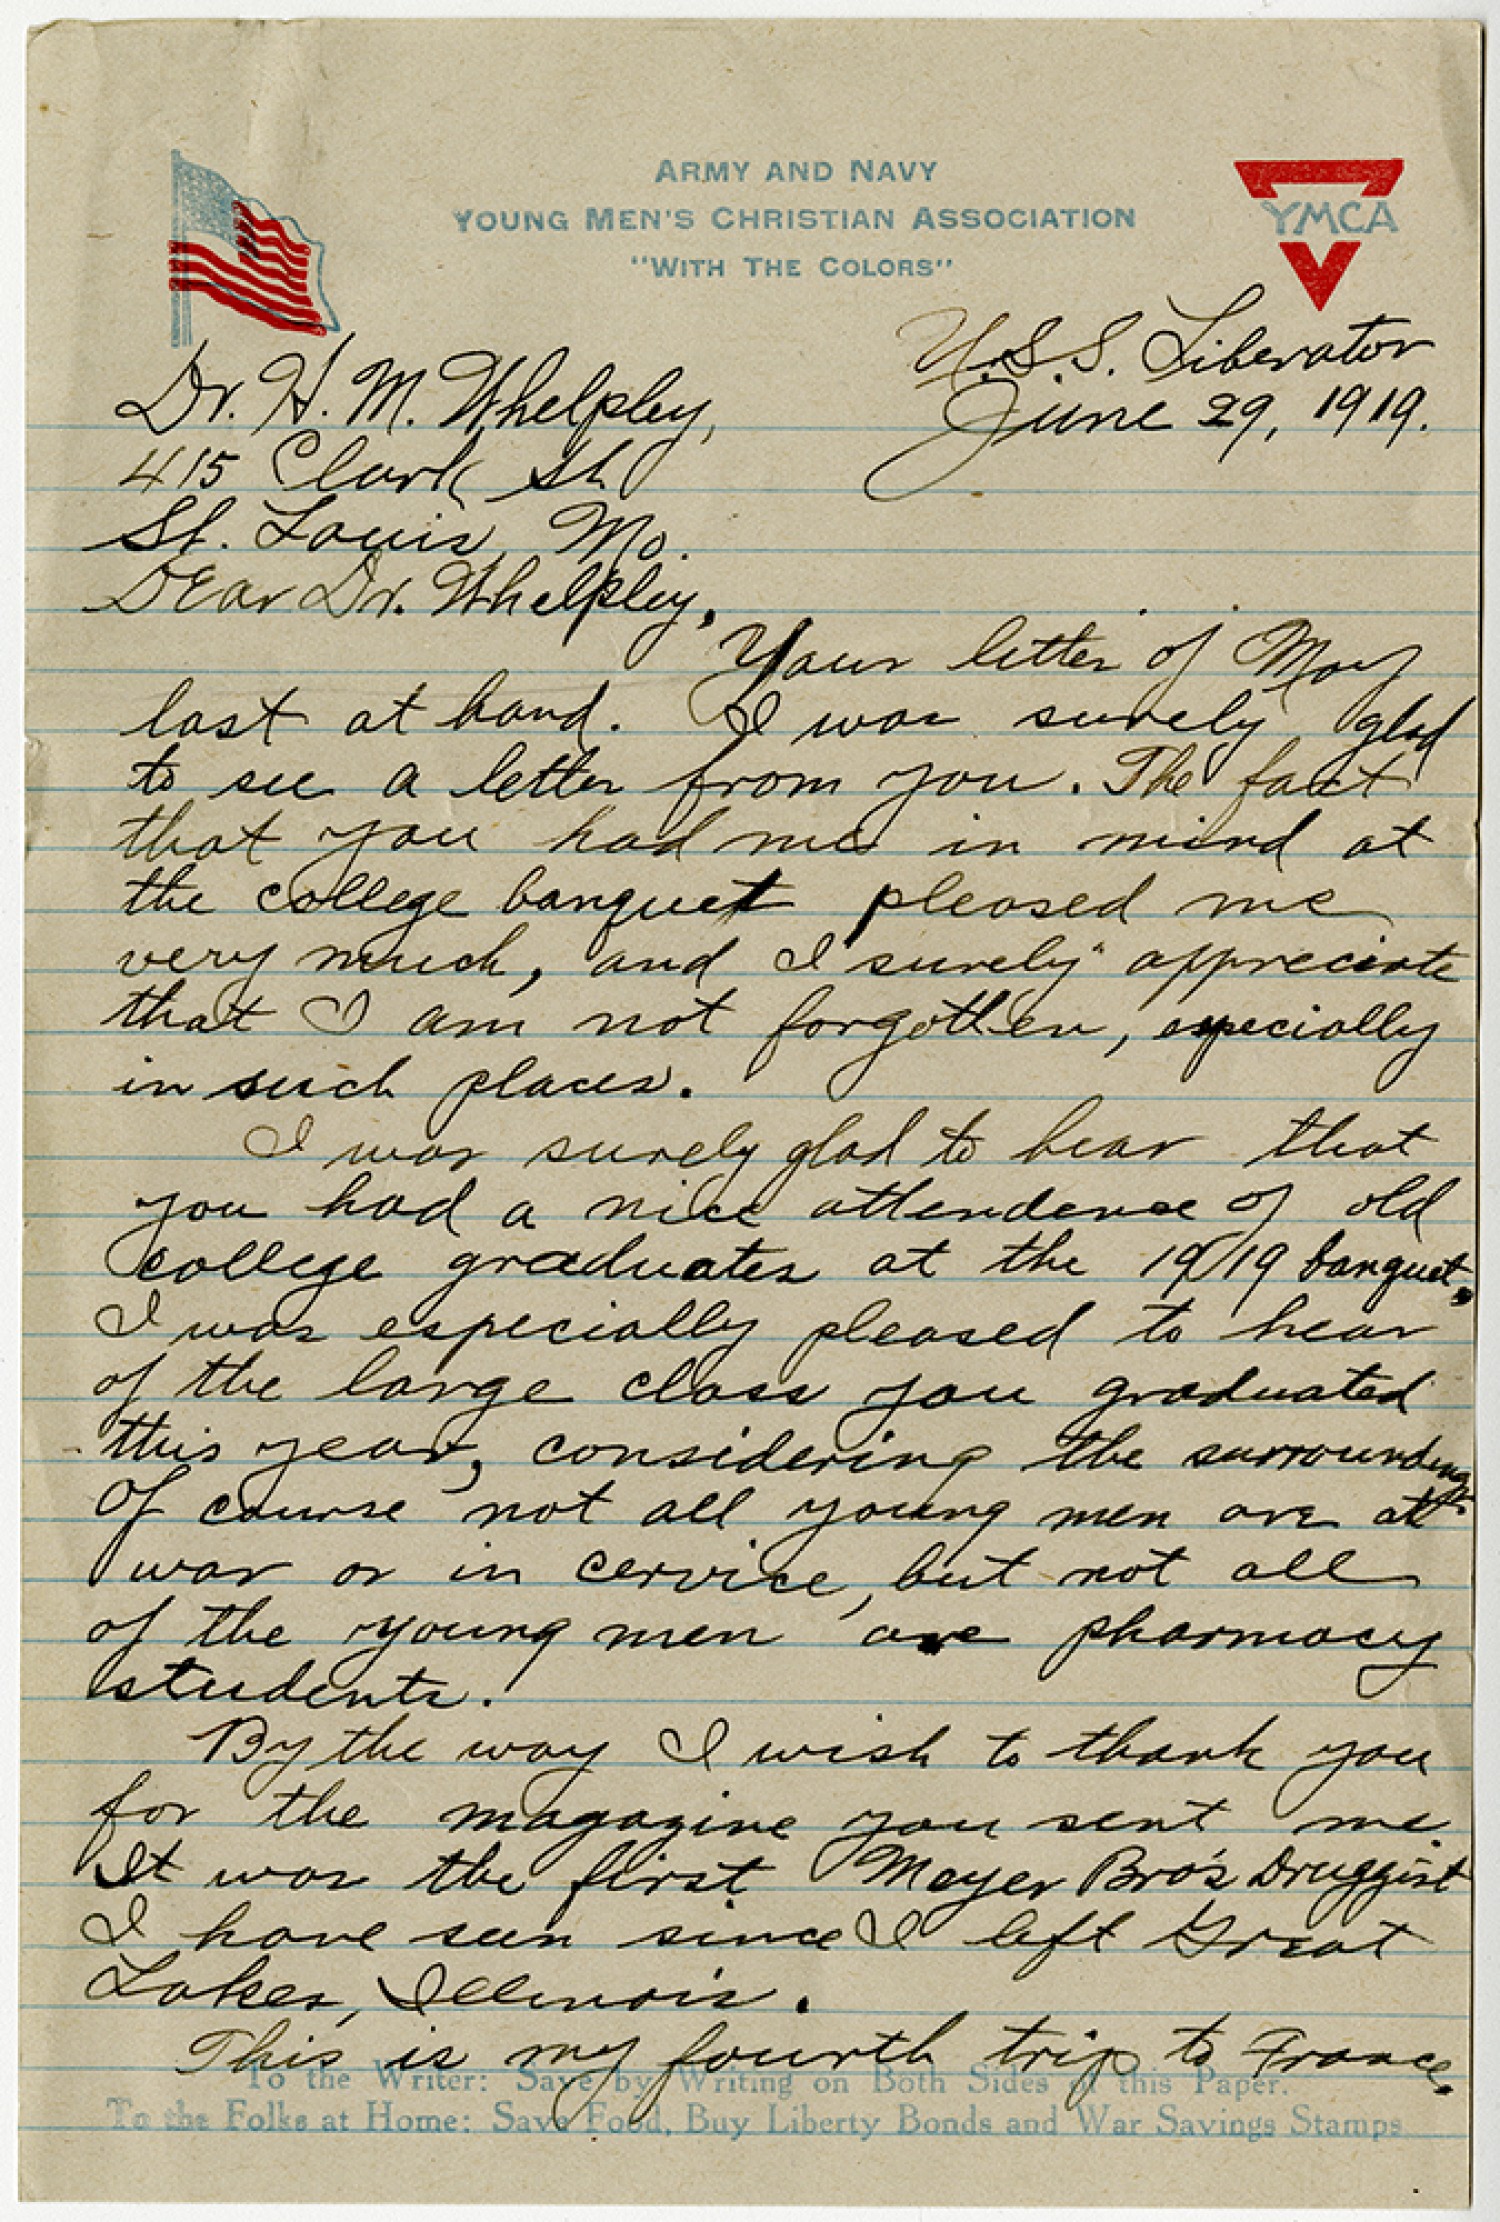 ARMY AND NAVY
YOUNG MEN'S CHRISTIAN ASSOCIATION
"WITH THE COLORS"
YMCA
U.S.S. Liberator
June 29, 1919.
Dr. H. M. Whelpley,
415 Clark St
St. Louis, Mo.
Dear Dr. Whelpley,
Your letter of May
last at hand. I was surely glad
to see a letter from you. The fact
that you had me in mind at
the college banquet pleased me
very much, and I surely appreciate
that I am not forgotten, especially
in such places.
I was surely glad to hear that
you had a nice attendence of old
college graduates at the 1919 banquet.
I was especially pleased to hear
of the large class you graduated
this year, considering the surroundings.
Of course not all young men are at
war or in cervice, but not all
of the young men are pharmacy
students.
By the way I wish to thank you
for the magazine you sent me.
It was the first Meyer Bro's Druggist
I have seen since I left Great
Lakes, Illinois.
This is my fourth trip to France.
To the Writer: Save by Writing on Both Sides of this Paper.
To the Folks at Home: Save Food, Buy Liberty Bonds and War Savings Stamps